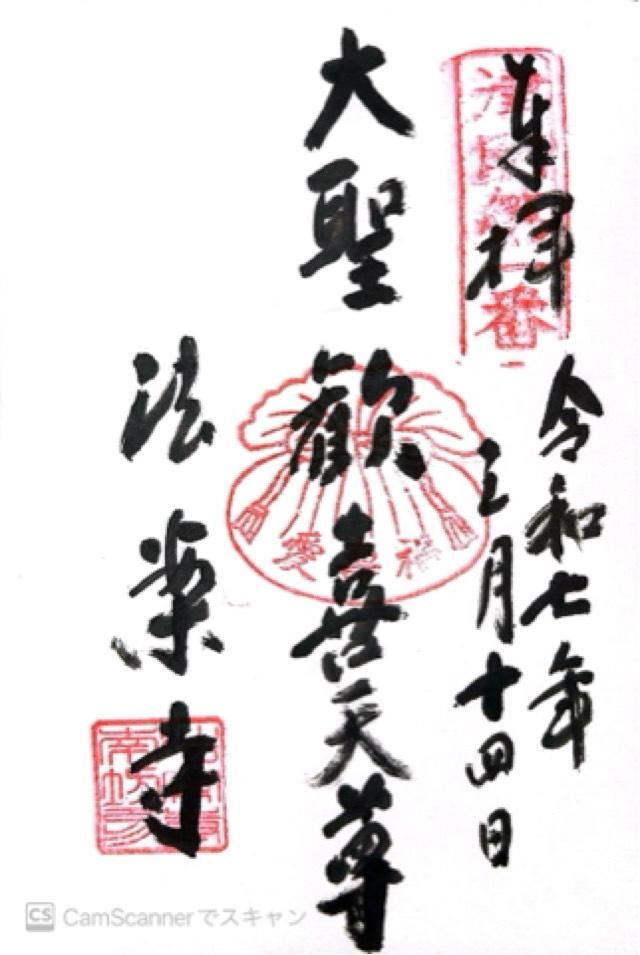 奉拝
令和七年
三月十四日
大聖歡喜天尊
法案寺
CS CamScannerでスキャン